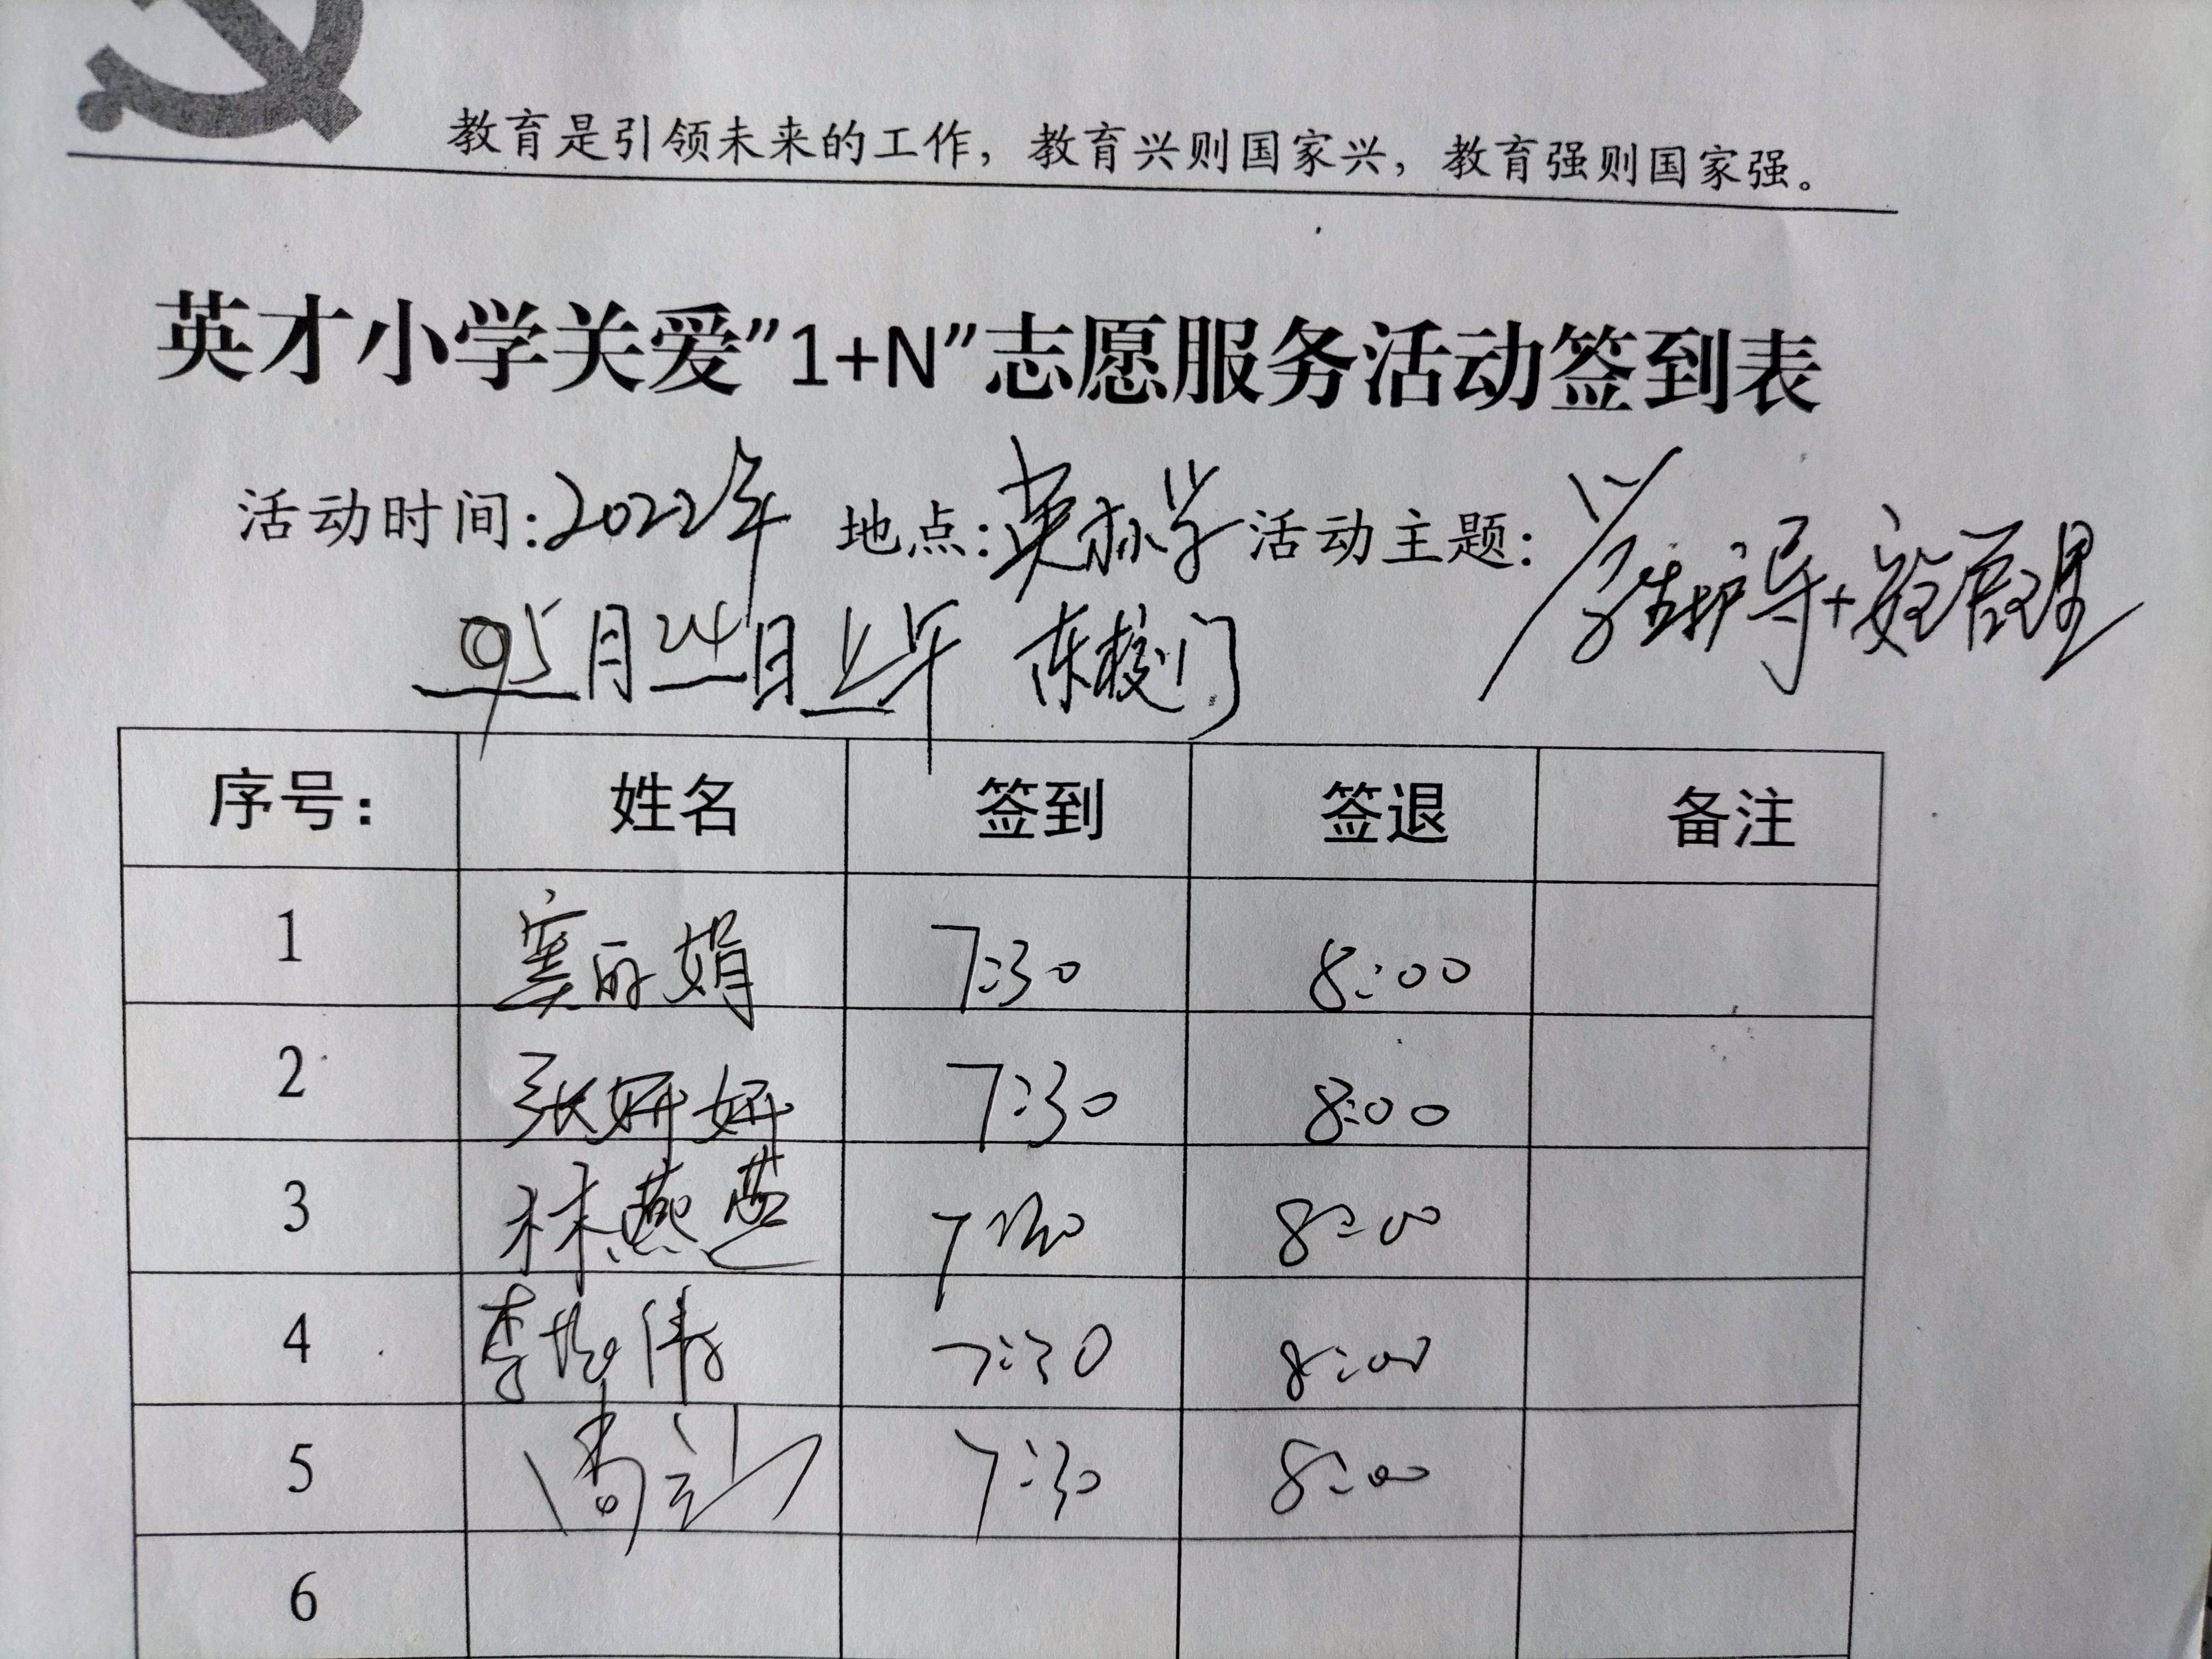 教育是引领未来的工作，教育兴则国家兴，教育强则国家强。
英才小学关爱”1+N”志愿服务活动签到表
活动时间:2022年 地点:英才小学 活动主题: 学生护导+安全管理
05月24日上午 东校门
序号: 姓名 签到 签退 备注
1 窦丽娟 7:30 8:00
2 张妍妍 7:30 8:00
3 林燕芝 7:30 8:00
4 李 伟 7:30 8:00
5 7:30 8:00
6